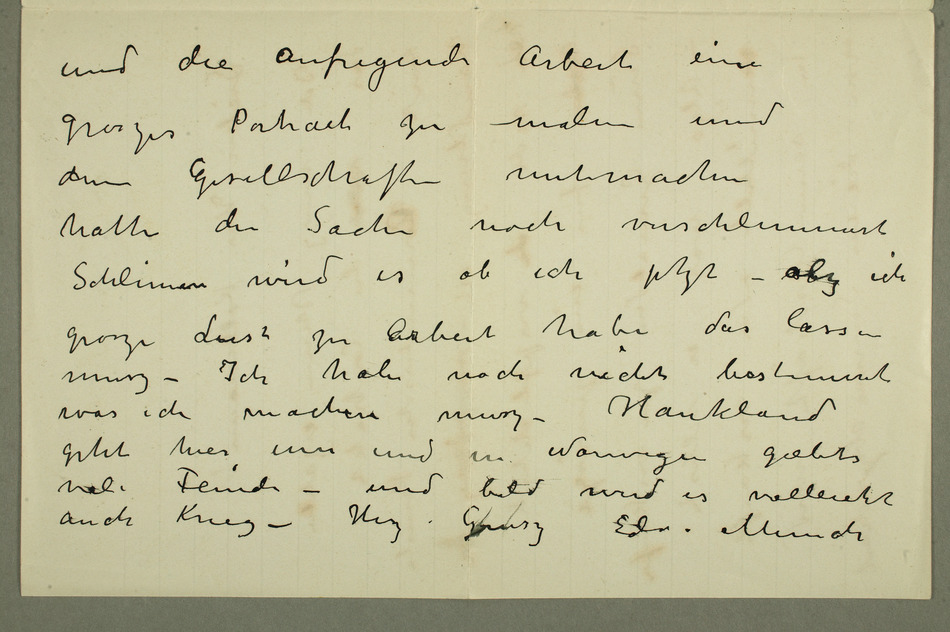 und die anfregende Arbeit eine
groszes Portrait zu malen und
den Gesellschaften mitmachen
hatte die Sache noch verschlimmert
Schlimm wird es ob ich jetzt – ich
grosze Lust zu Arbeit habe das lassen
musz – Ich habe noch nicht bestimmt
was ich machen musz – Hankland
geht hier um und in Norwegen giebts
viele Feinde – und bald wird es velleicht
auch Krieg – Herz. Grusz Edv. Munch